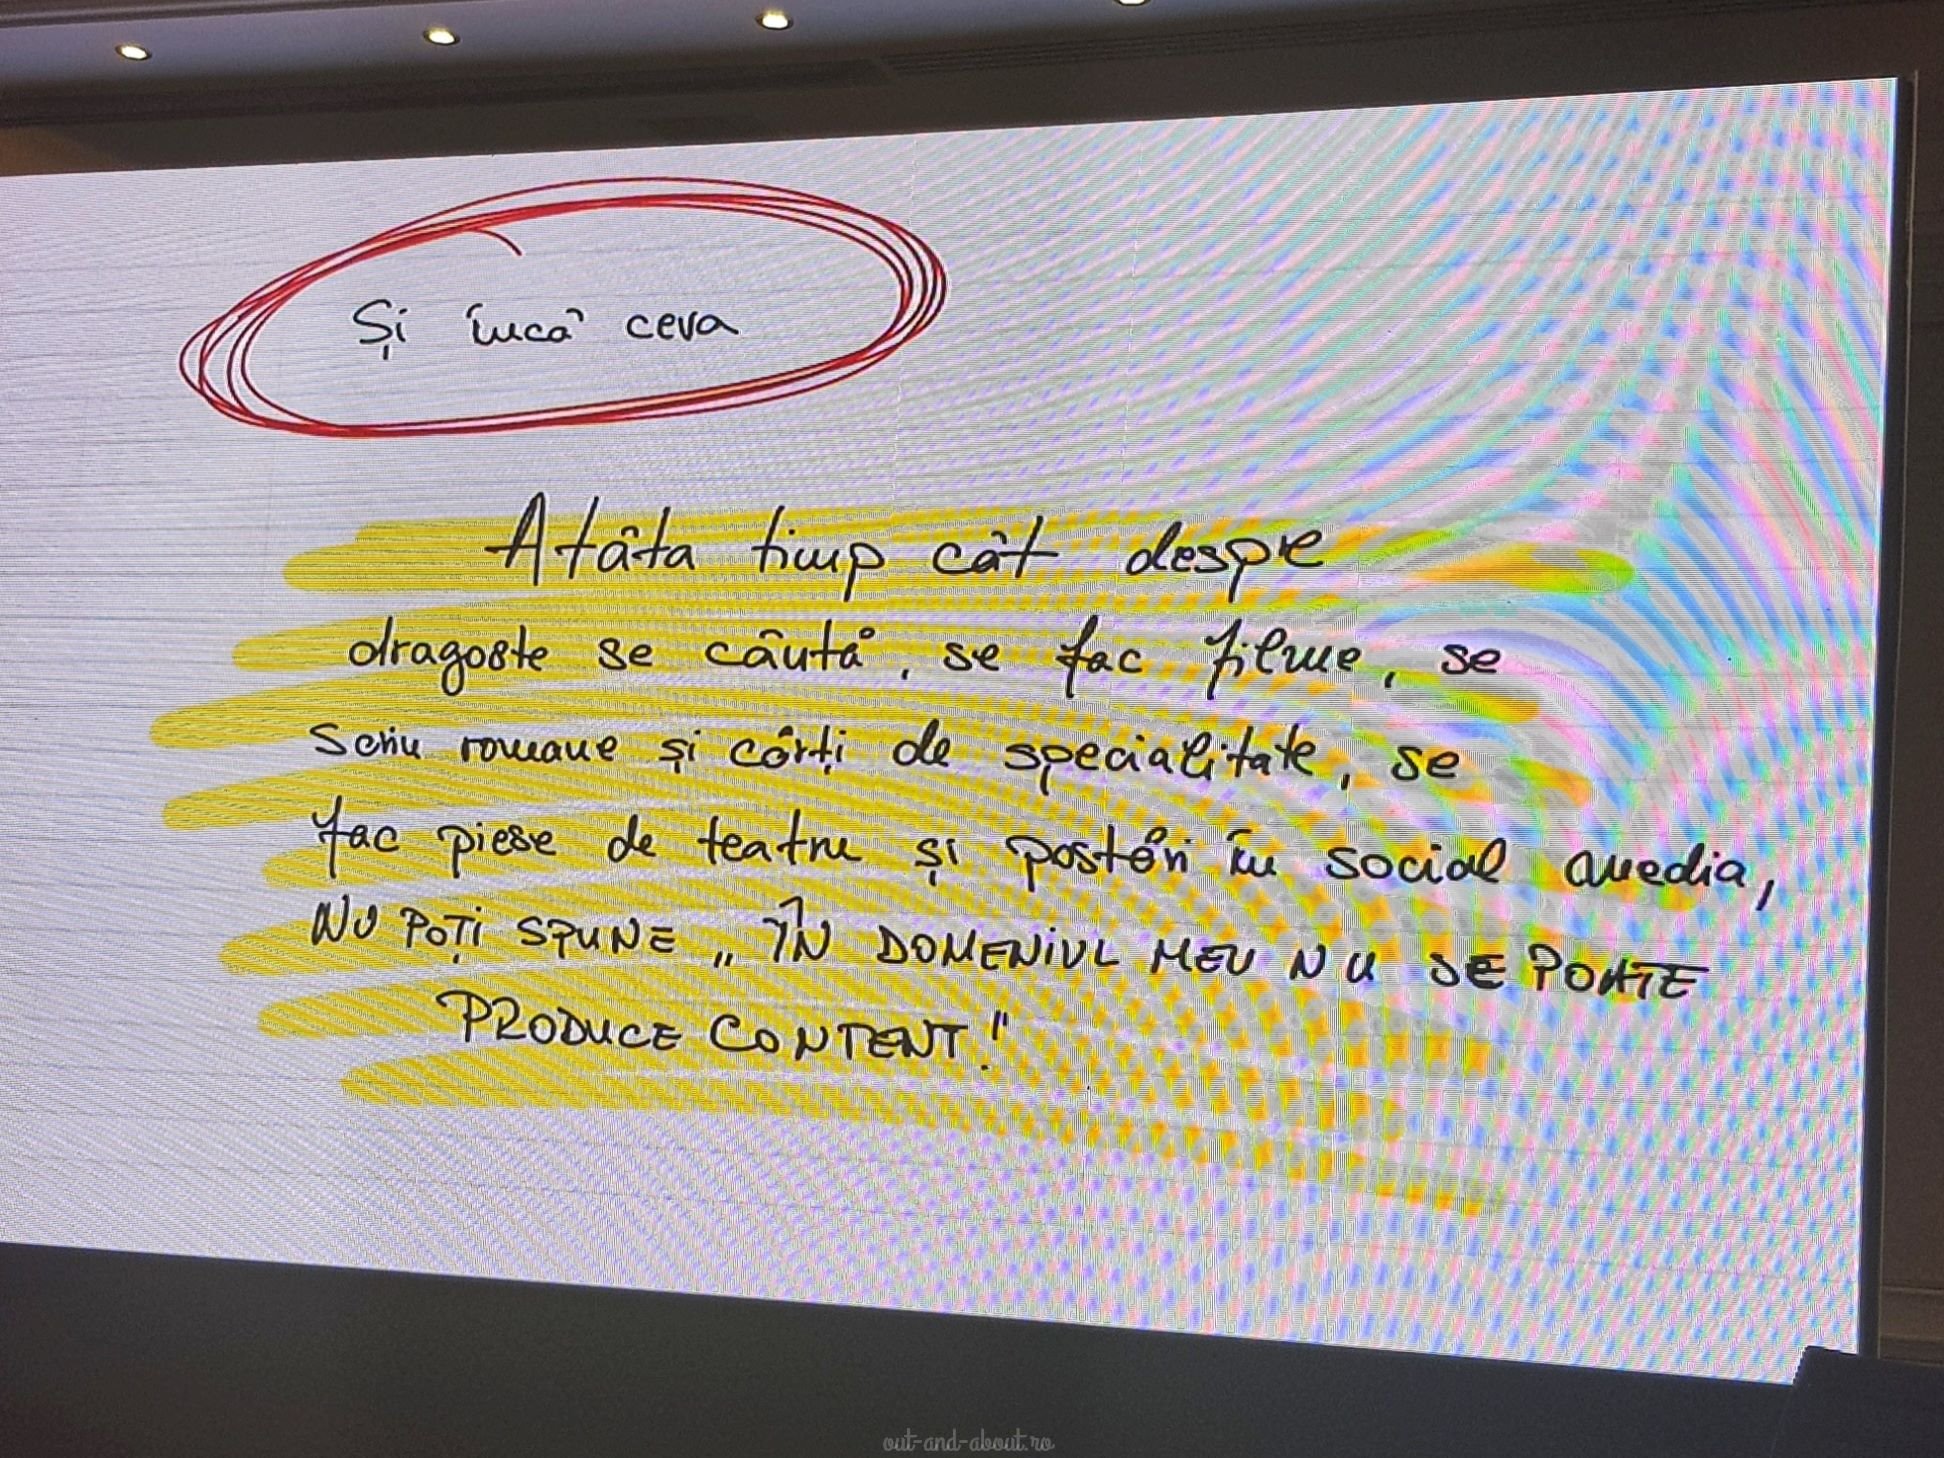 Și încă ceva
Atâta timp cât despre
dragoste se cântă, se fac filme, se
scriu romane și cărți de specialitate, se
fac piese de teatru și postări în social media,
NU POȚI SPUNE „ÎN DOMENIUL MEU NU SE POATE
PRODUCE CONTENT!"
out-and-about.ro